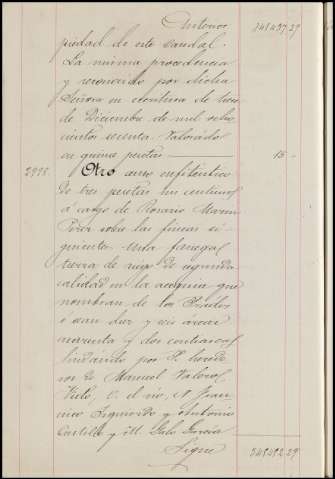 Anterior 248437.29
piedad de este caudal.
La misma procedencia
y reconocido por dicha
Señora en escritura de trece
de Diciembre de mil ocho
cientos ochenta. Valorado
en quince pesetas 15 -
2978. Otro censo enfitéutico
de tres pesetas un centimos
á cargo de Rosario Marin
sobre las fincas si
guientes. Una fanega
tierra de riego de segunda
calidad en la acequia que
nombran de los Prados
ó sean diez y seis áreas
cuarenta y dos centiareas
lindando por S. herede
ros de Manuel Valerol
Nieto, O. el rio, N. Fran
cisco Izquierdo y Antonio
Castillo y M. Galo Garcia
Sigue 248452.29